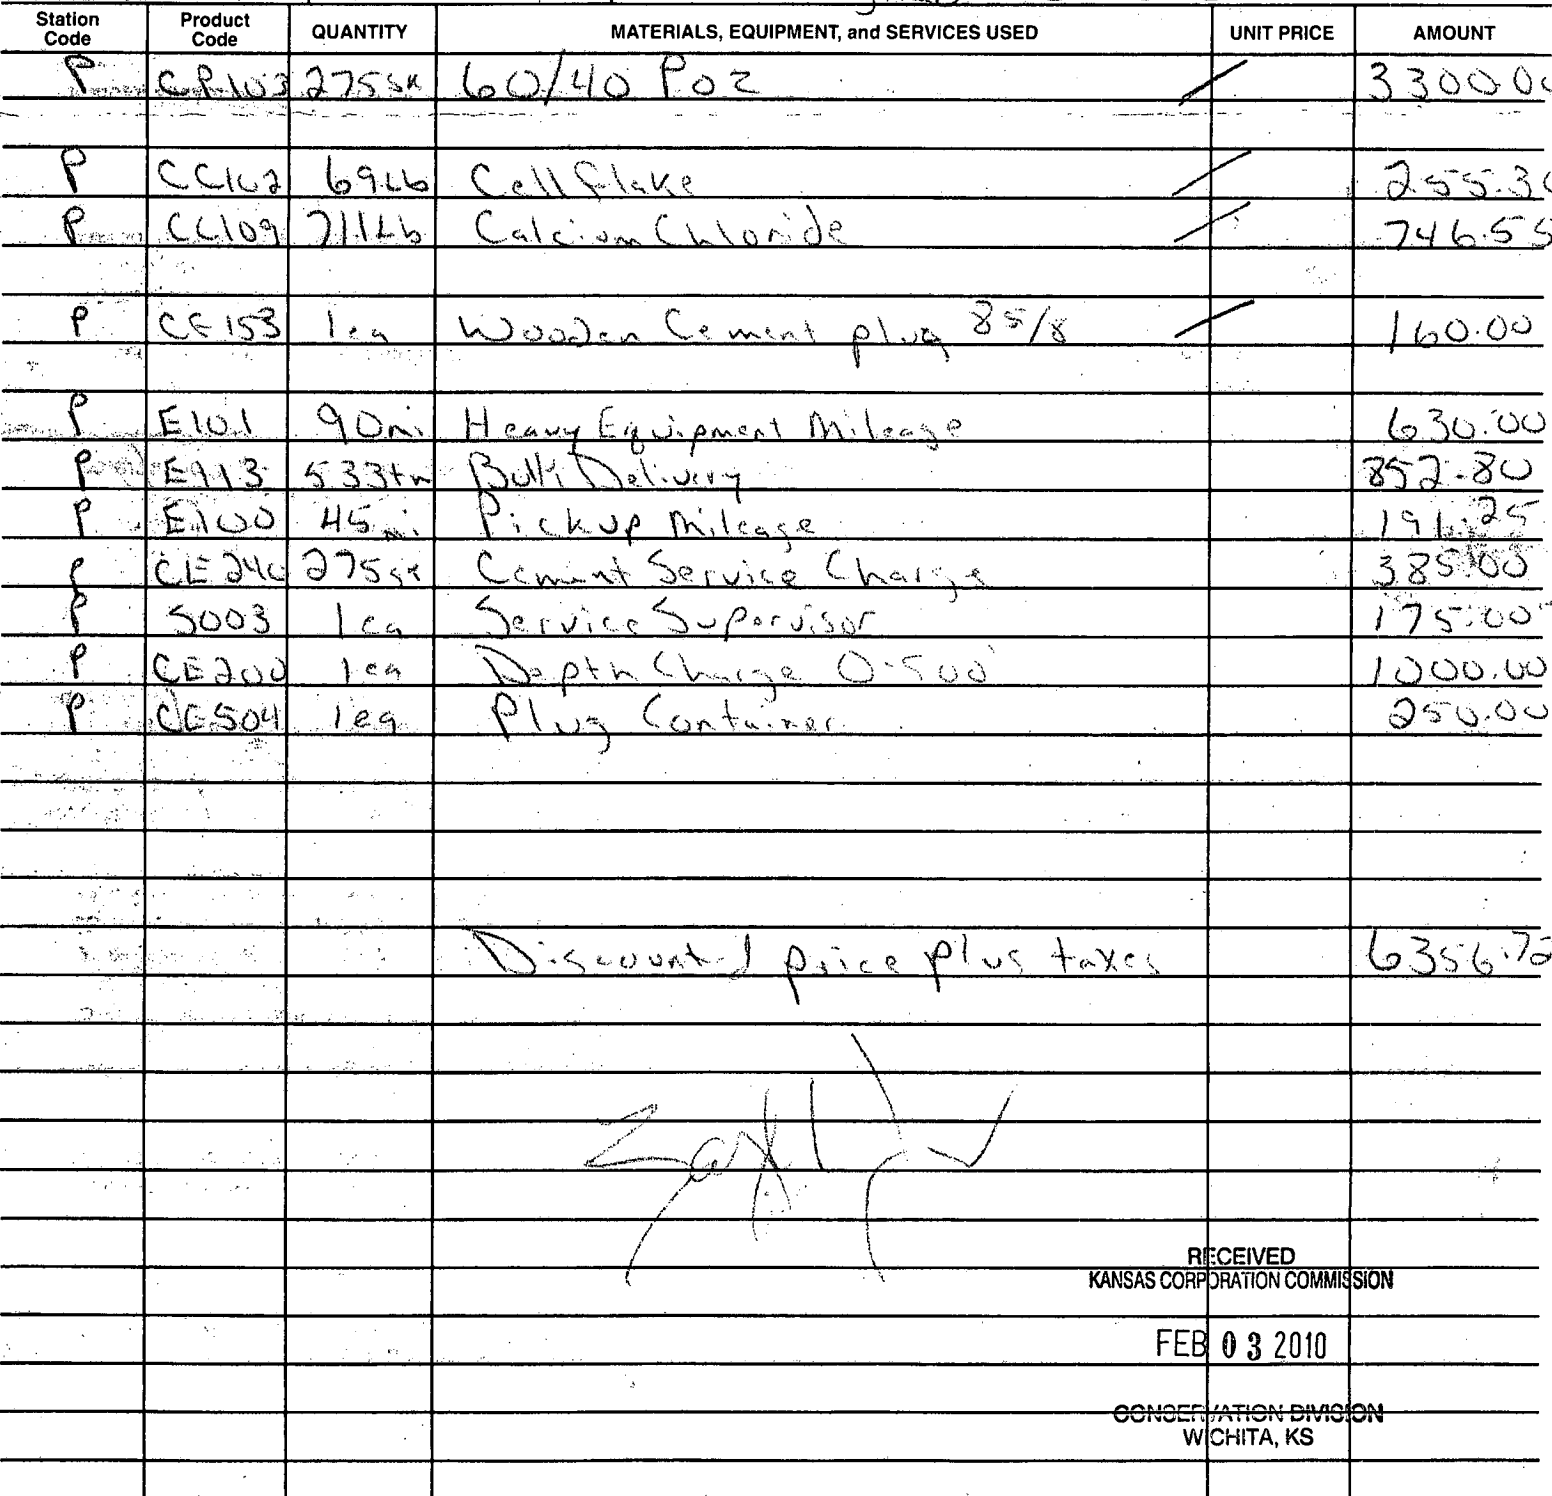 Station Code Product Code QUANTITY MATERIALS, EQUIPMENT, and SERVICES USED UNIT PRICE AMOUNT
P CP103 275sk 60/40 Poz 3300.00
P CC102 69Lb Cellflake 255.30
P CC109 711Lb Calcium Chloride 746.55
P CE153 1ea Wooden Cement plug 85/8 160.00
P E101 90mi Heavy Equipment Mileage 630.00
P E113 533tm Bulk Delivery 852.80
P E100 45mi Pickup Mileage 191.25
P CE240 275sk Cement Service Charge 385.00
P S003 1ea Service Supervisor 175.00
P CE200 1ea Depth Charge 0-500' 1000.00
P CE504 1ea Plug Container 250.00
Discounted price plus taxes 6356.72
RECEIVED
KANSAS CORPORATION COMMISSION
FEB 03 2010
CONSERVATION DIVISION
WICHITA, KS